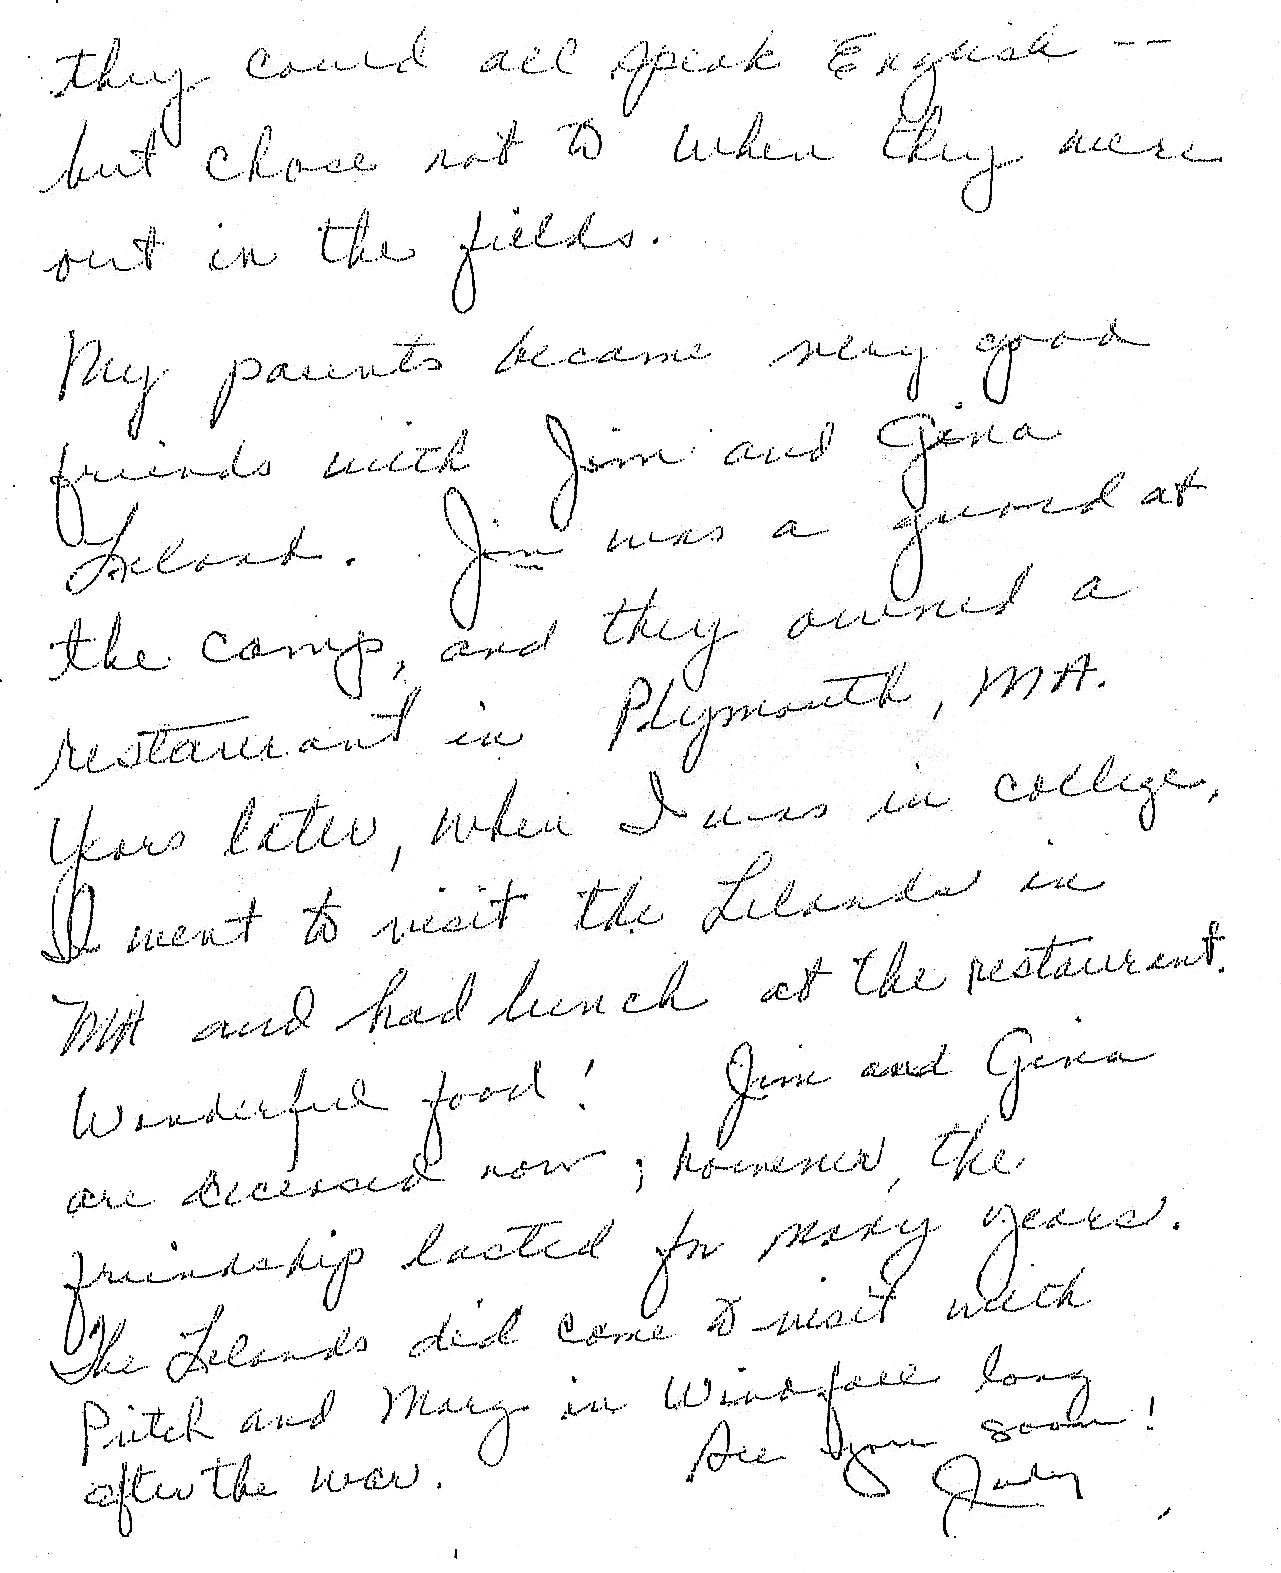 they could all speak English --
but chose not to when they were
out in the fields.
My parents became very good
friends with Jim and Gina
Leland. Jim was a guard at
the camp, and they owned a
restaurant in Plymouth, MA.
Years later, when I was in college,
I went to visit the Lelands in
MA and had lunch at the restaurant.
Wonderful food! Jim and Gina
are deceased now; however, the
friendship lasted for many years.
The Lelands did come to visit with
Pritch and Marg in Windfall long
after the war. See you soon!
Judy